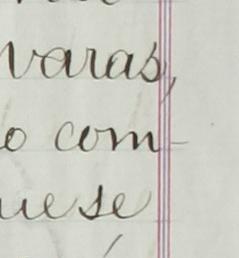 varas,
o com-
ue se